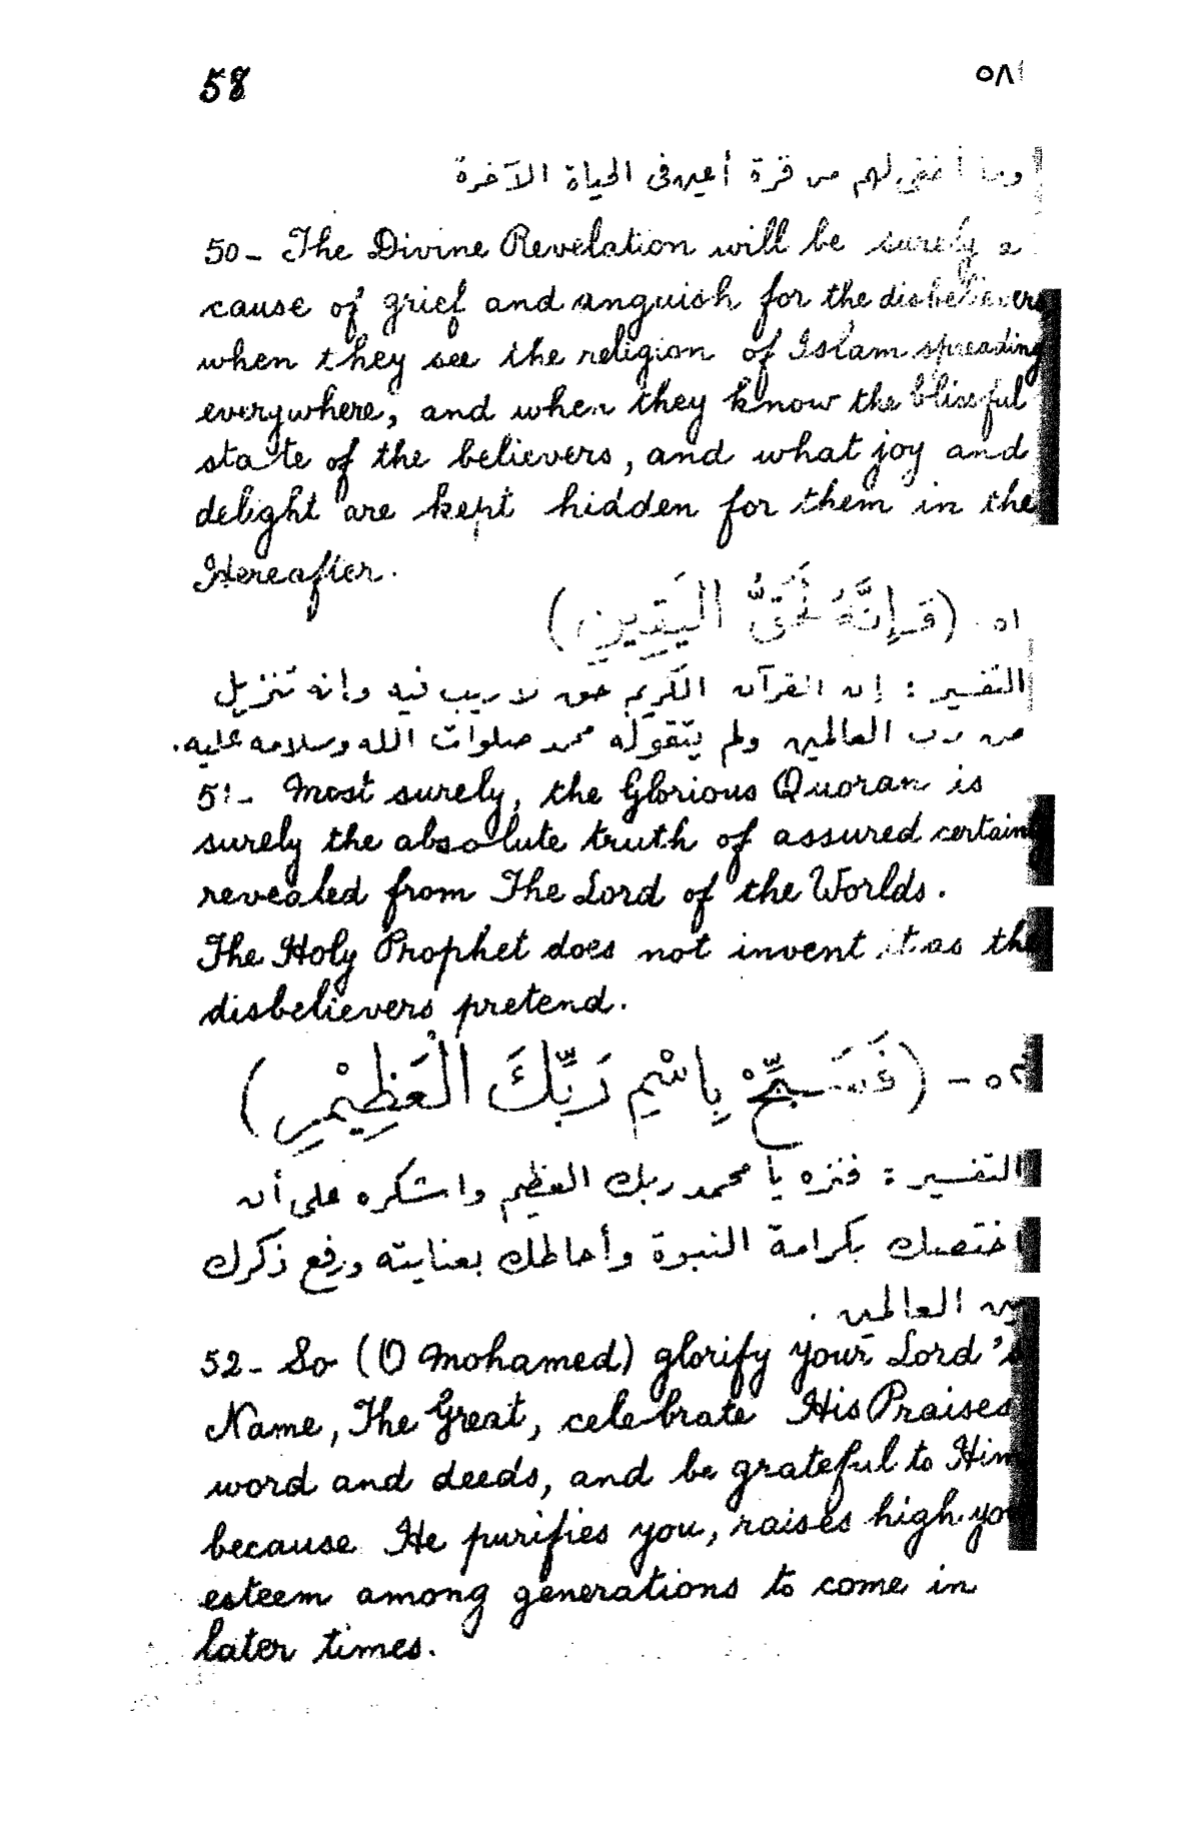 58 ٥٨
وما أخفى لهم من قرة أعين فى الحياة الآخرة
50- The Divine Revelation will be surely a
cause of grief and anguish for the disbelievers
when they see the religion of Islam spreading
everywhere, and when they know the blissful
state of the believers, and what joy and
delight are kept hidden for them in the
Hereafter.
٥١- (وَإِنَّهُ لَحَقُّ الْيَقِينِ)
التفسير : إن القرآن الكريم حق لا ريب فيه وإنه تنزيل
من رب العالمين ولم يتقوله محمد صلوات الله وسلامه عليه.
51- Most surely, the Glorious Quoran is
surely the absolute truth of assured certain
revealed from The Lord of the Worlds.
The Holy Prophet does not invent it as the
disbelievers pretend.
٥٢- (فَسَبِّحْ بِاسْمِ رَبِّكَ الْعَظِيْمِ)
التفسير : فنزه يا محمد ربك العظيم واشكره على أن
اختصك بكرامة النبوة وأحاطك بعنايته ورفع ذكرك
بين العالمين .
52- So (O Mohamed) glorify your Lord's
Name, The Great, celebrate His Praises
word and deeds, and be grateful to Him
because He purifies you, raises high you
esteem among generations to come in
later times.